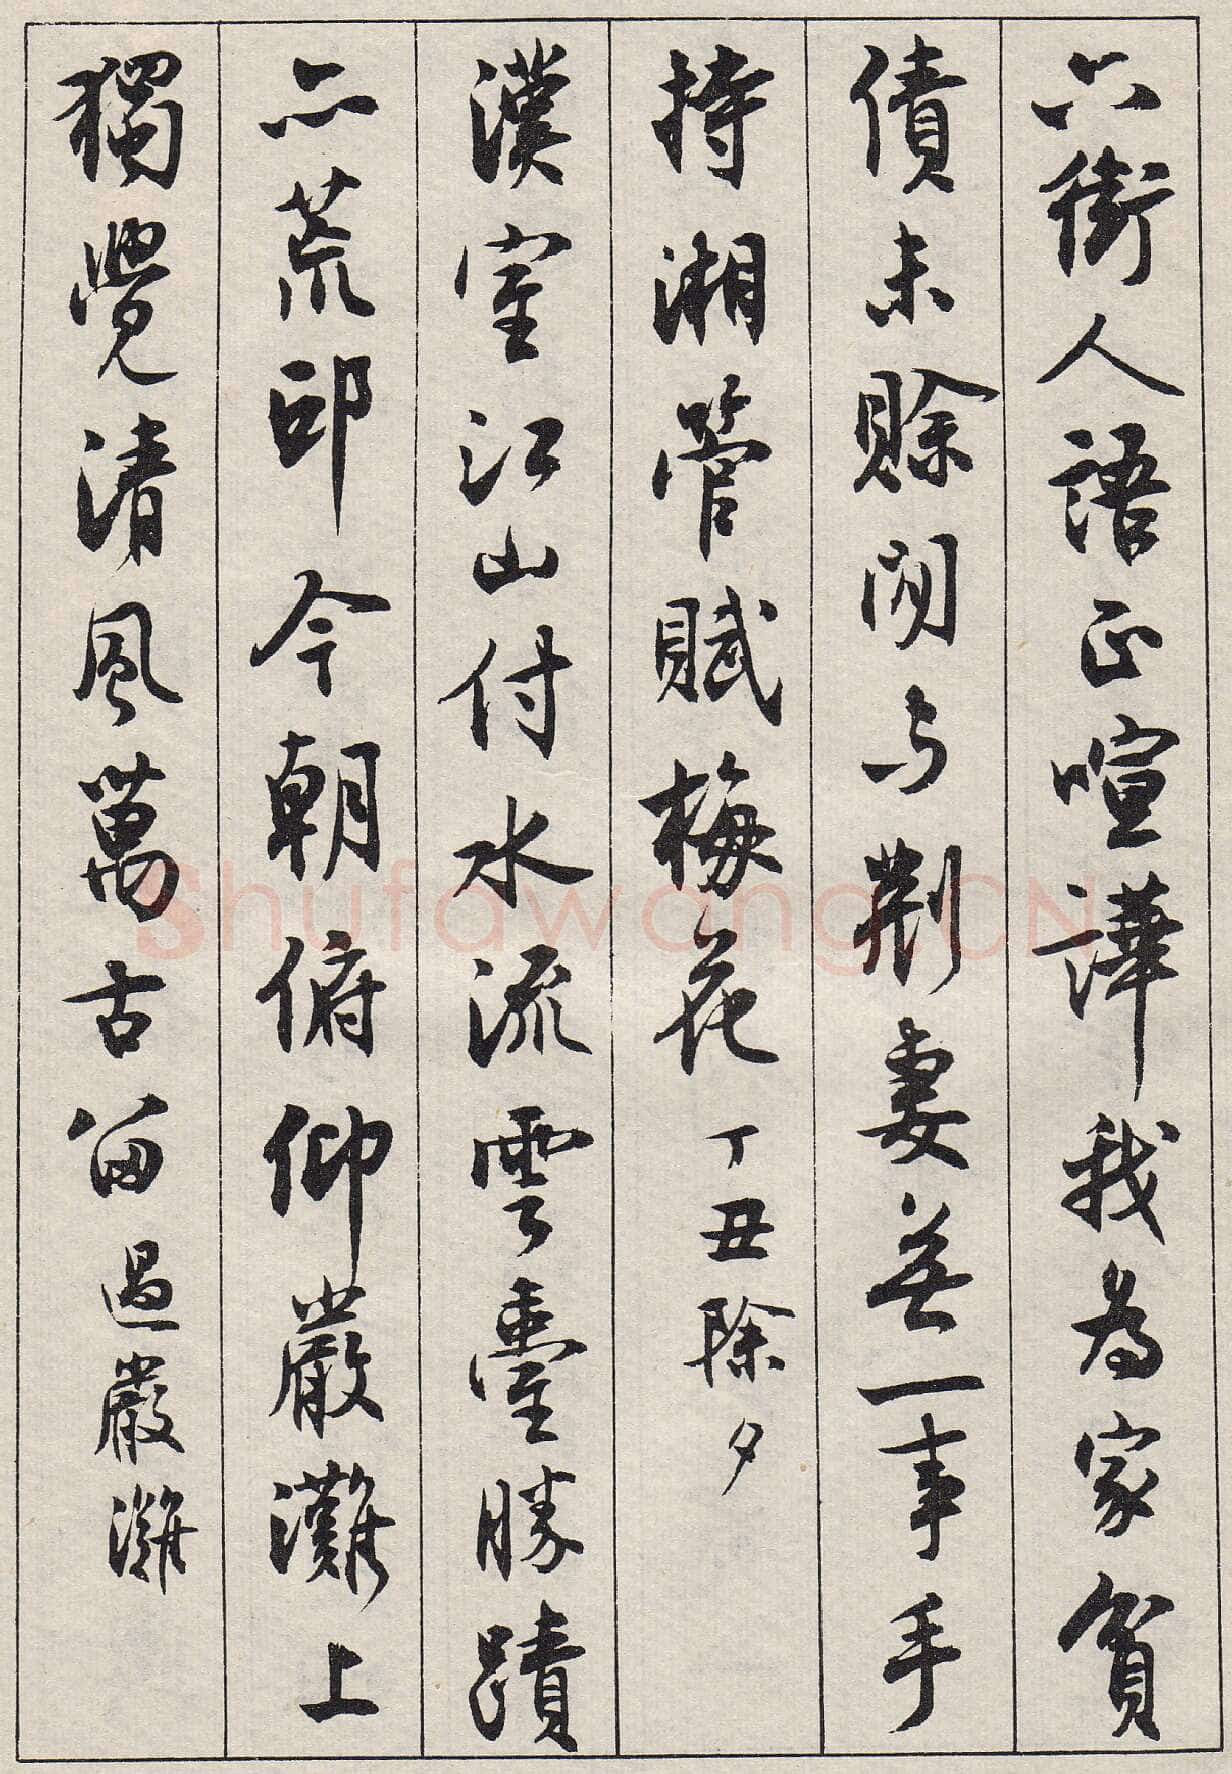 六街人語正喧譁我為家貧
債未賒閒与荊妻無一事手
持湘管賦梅花丁丑除夕
漢室江山付水流雲臺勝蹟
亦荒邱今朝俯仰嚴灘上
獨覺清風萬古留過嚴灘
Shufawang.CN